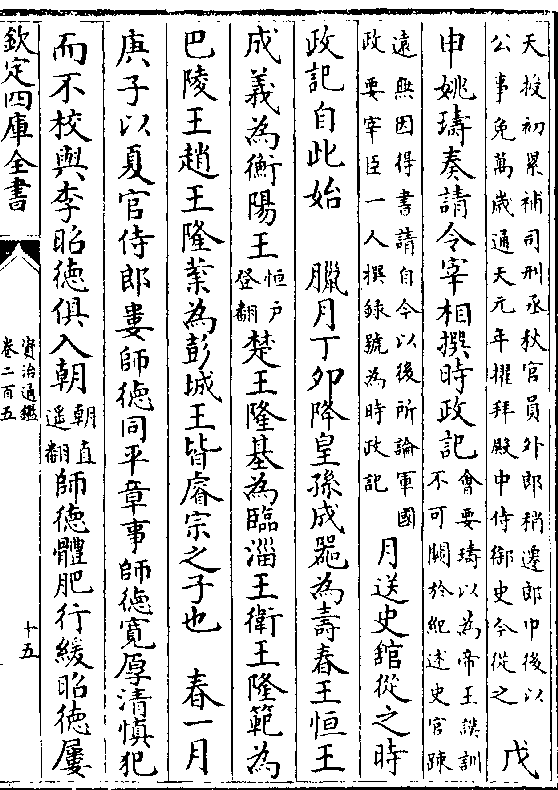 天授初累補司刑丞秋官員外郎稍遷郎中後以
公事免萬歲通天元年擢拜殿中侍御史今從之
戊
申姚璹奏請令宰相撰時政記
會要璹以為帝王謨訓
不可闕於紀述史官疎
遠無因得書請自今以後所論軍國
政要宰臣一人撰錄號為時政記
月送史館從之時
政記自此始 臘月丁卯降皇孫成器為壽春王恒王
成義為衡陽王
恒戶
登翻
楚王隆基為臨淄王衛王隆範為
巴陵王趙王隆業為彭城王皆睿宗之子也 春一月
庚子以夏官侍郎婁師德同平章事師德寛厚清慎犯
而不校與李昭德俱入朝
朝直
遥翻
師德體肥行緩昭德屢
欽定四庫全書
資治通鑑
卷二百五
十五